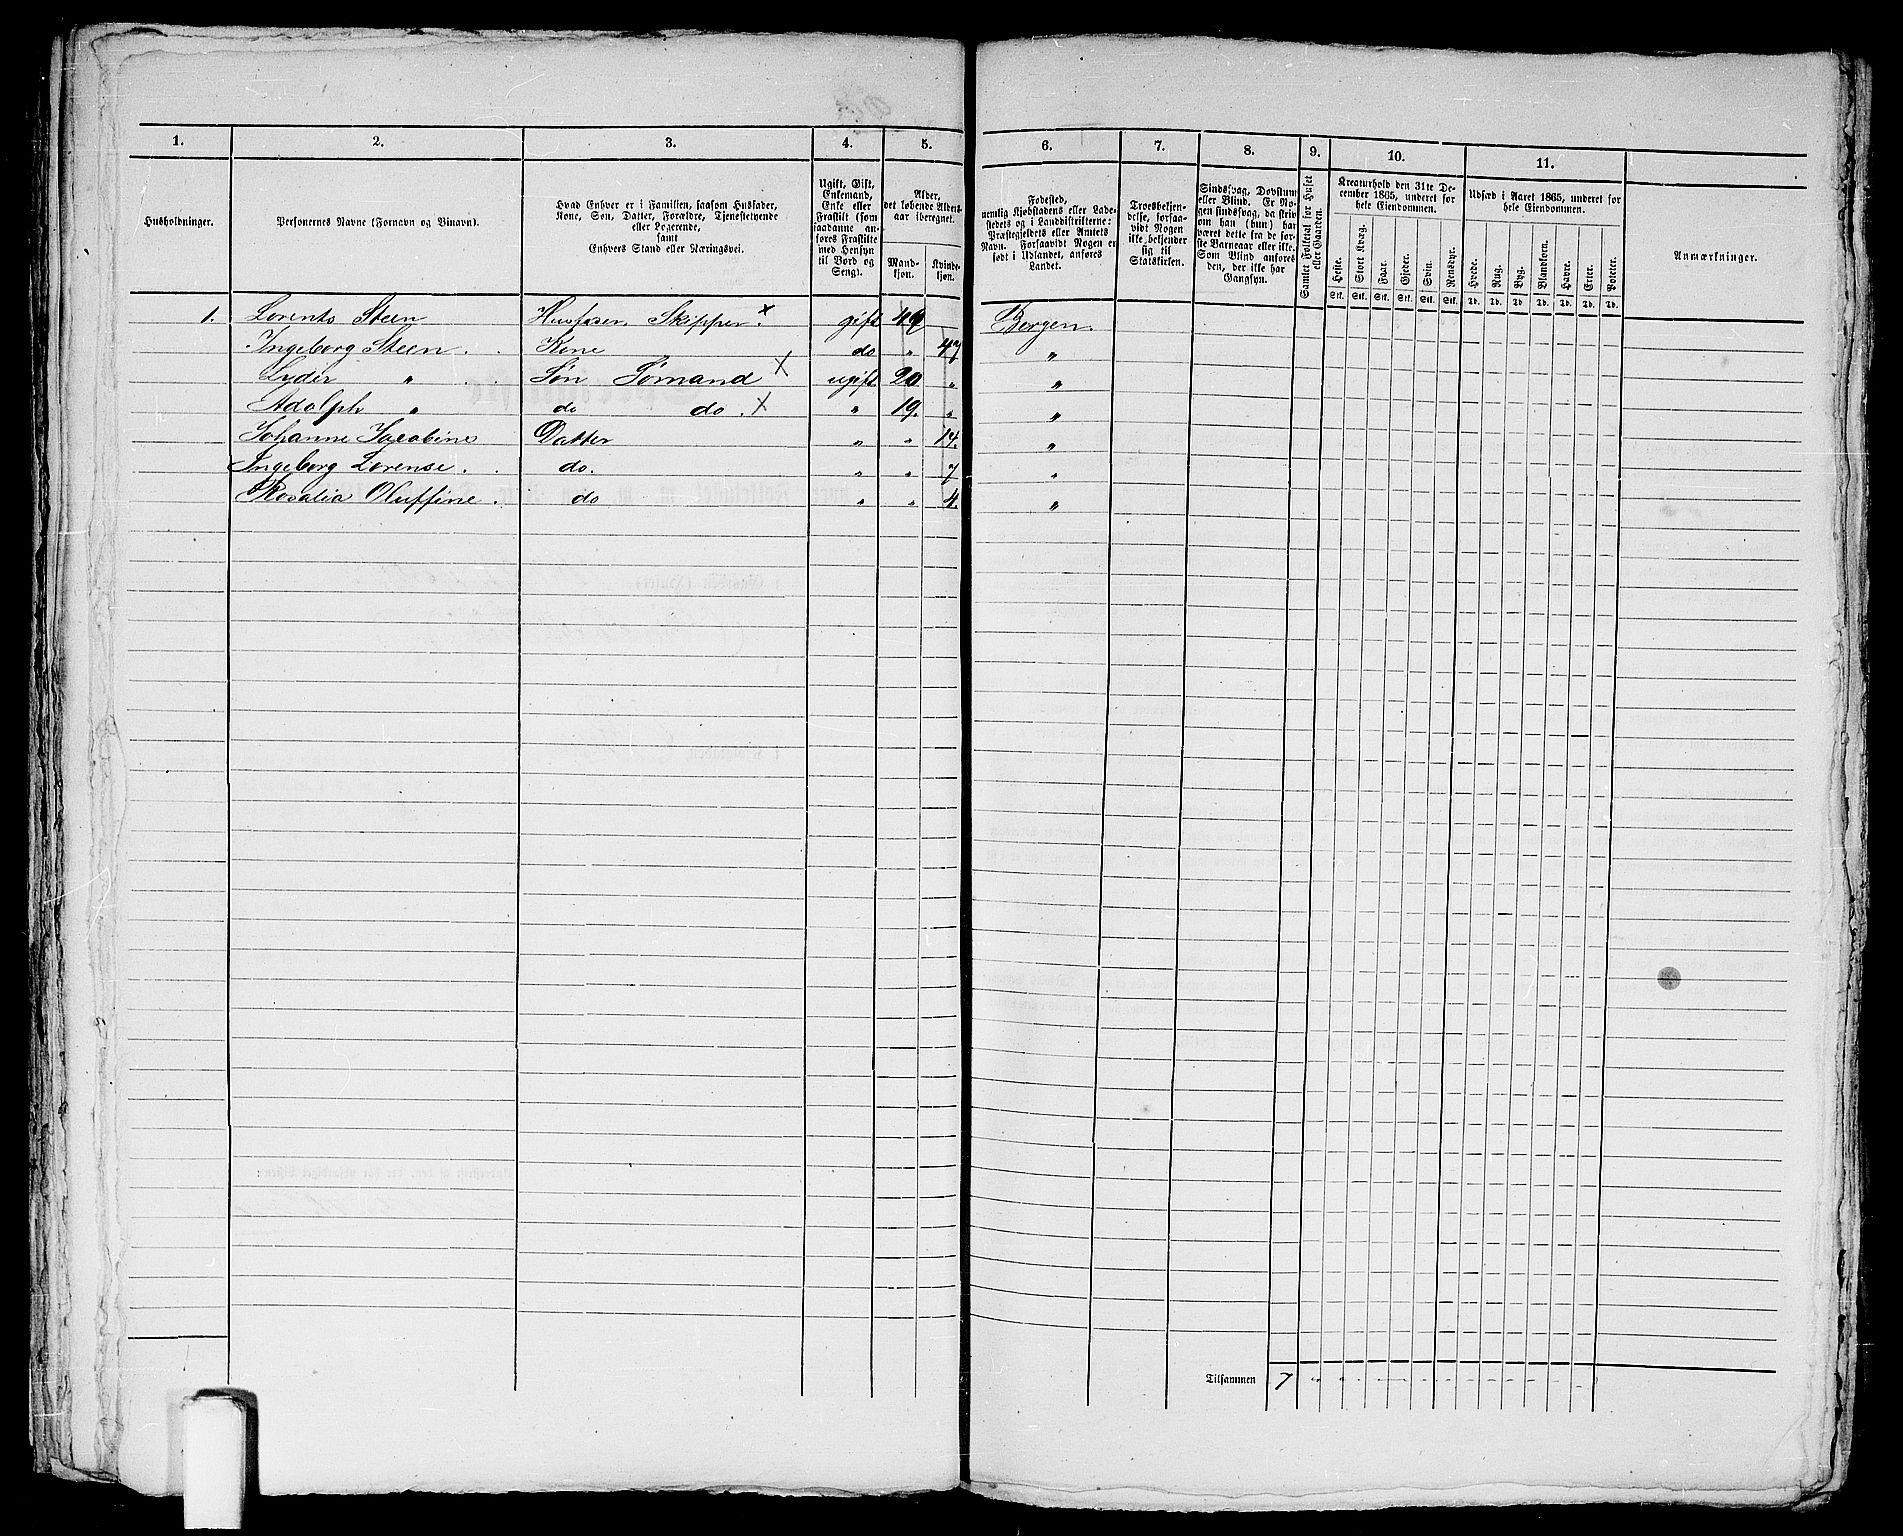 1. 2. 3. 4. 5. 6. 7. 8. 9. 10. 11.
Husholdninger.
Personernes Navne (Fornavn og Tilnavn).
Hvad Enhver er i Familien, saasom Husfader,
Kone, Søn, Datter, Forældre, Tjenestetyende
eller Logerende,
samt
Enhvers Stand eller Næringsvei.
Ugift, Gift,
Enkemand,
Enke eller
Fraskilt (som
saadanne an-
føres Fraskilte
med Hensyn
til Bord og
Seng).
Alder,
det løbende Alders-
aar iberegnet.
Mand-
kjøn.
Kvinde-
kjøn.
Fødested,
nemlig Kjøbstadens eller Lade-
stedets og i Landdistrikterne:
Præstegjeldets eller Amtets
Navn. Forsaavidt Nogen er
født i Udlandet, anføres
Landet.
Troesbekjen-
delse, forsaa-
vidt Nogen
ikke bekjender
sig til
Statskirken.
Sindssvag, Døvstum
eller Blind. Er No-
gen sindssvag, da skriv
om han (hun) har
været dette fra de før-
ste Barneaar eller ikke.
Som Blind anføres
den, der ikke har
Gangsyn.
Samlet Folketal for Huset
eller Gaarden.
Kreaturhold den 31te De-
cember 1865, underet for
hele Eiendommen.
Heste. Stort Kvæg. Faar. Gjeder. Svin. Rensdyr.
Stk. Stk. Stk. Stk. Stk. Stk.
Udsæd i Aaret 1865, underet for
hele Eiendommen.
Hvede. Rug. Byg. Blandkorn. Havre. Erter. Poteter.
Td. Td. Td. Td. Td. Td. Td.
Anmærkninger.
1. Lorents Steen Husfader, Skipper. x gift 49 Bergen.
Ingeborg Steen. Kone do " 47 "
Lyder " Søn Sømand X ugift 20 " "
Adolph " do do. X " 19. " "
Johanne Jacobine Datter " " 14. "
Ingeborg Lorense. do. " " 7 "
Rosalia Oluffine. do " " 4. "
Tilsammen 7